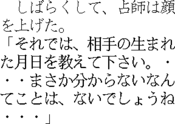 しばらくして、占師は顔
を上げた。
「それでは、相手の生まれ
た月日を教えて下さい。・
・・まさか分からないなん
てことは、ないでしょうね
・・・」